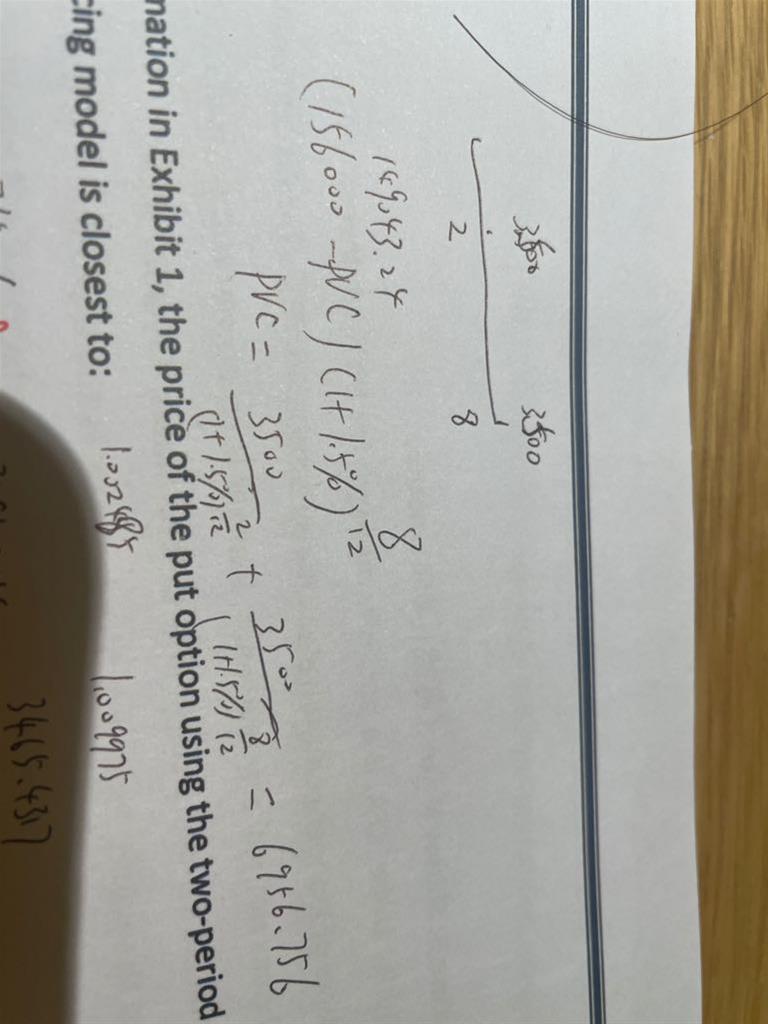 3500 3500
2 8
149043.24
(156000 - PVC) (1+1.5%)^8/12
PVC = 3500/(1+1.5%)^2/12 + 3500/(1+1.5%)^8/12 = 6956.756
nation in Exhibit 1, the price of the put option using the two-period
cing model is closest to:
1.0024845 1.009975
3465.4317